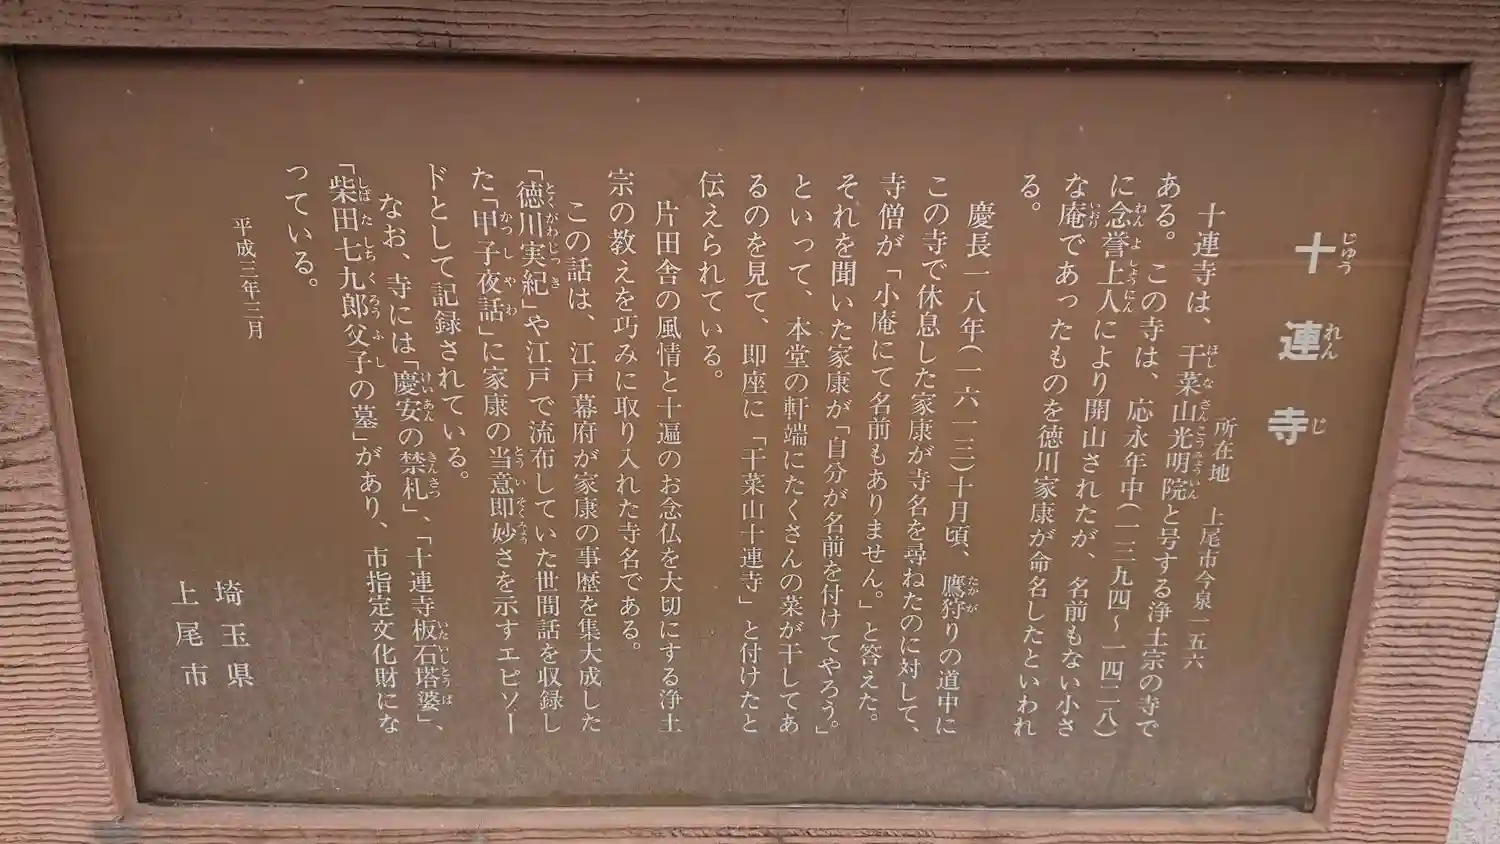 十連寺
所在地 上尾市今泉一五六
十連寺は、干菜山光明院と号する浄土宗の寺で
ある。この寺は、応永年中(一三九四〜一四二八)
に念誉上人により開山されたが、名前もない小さ
な庵であったものを徳川家康が命名したといわれ
る。
慶長一八年(一六一三)十月頃、鷹狩りの道中に
この寺で休息した家康が寺名を尋ねたのに対して、
寺僧が「小庵にて名前もありません。」と答えた。
それを聞いた家康が「自分が名前を付けてやろう。」
といって、本堂の軒端にたくさんの菜が干してあ
るのを見て、即座に「干菜山十連寺」と付けたと
伝えられている。
片田舎の風情と十遍のお念仏を大切にする浄土
宗の教えを巧みに取り入れた寺名である。
この話は、江戸幕府が家康の事歴を集大成した
「徳川実紀」や江戸で流布していた世間話を収録し
た「甲子夜話」に家康の当意即妙さを示すエピソー
ドとして記録されている。
なお、寺には「慶安の禁札」、「十連寺板石塔婆」、
「柴田七九郎父子の墓」があり、市指定文化財にな
っている。
平成三年三月
埼玉県
上尾市